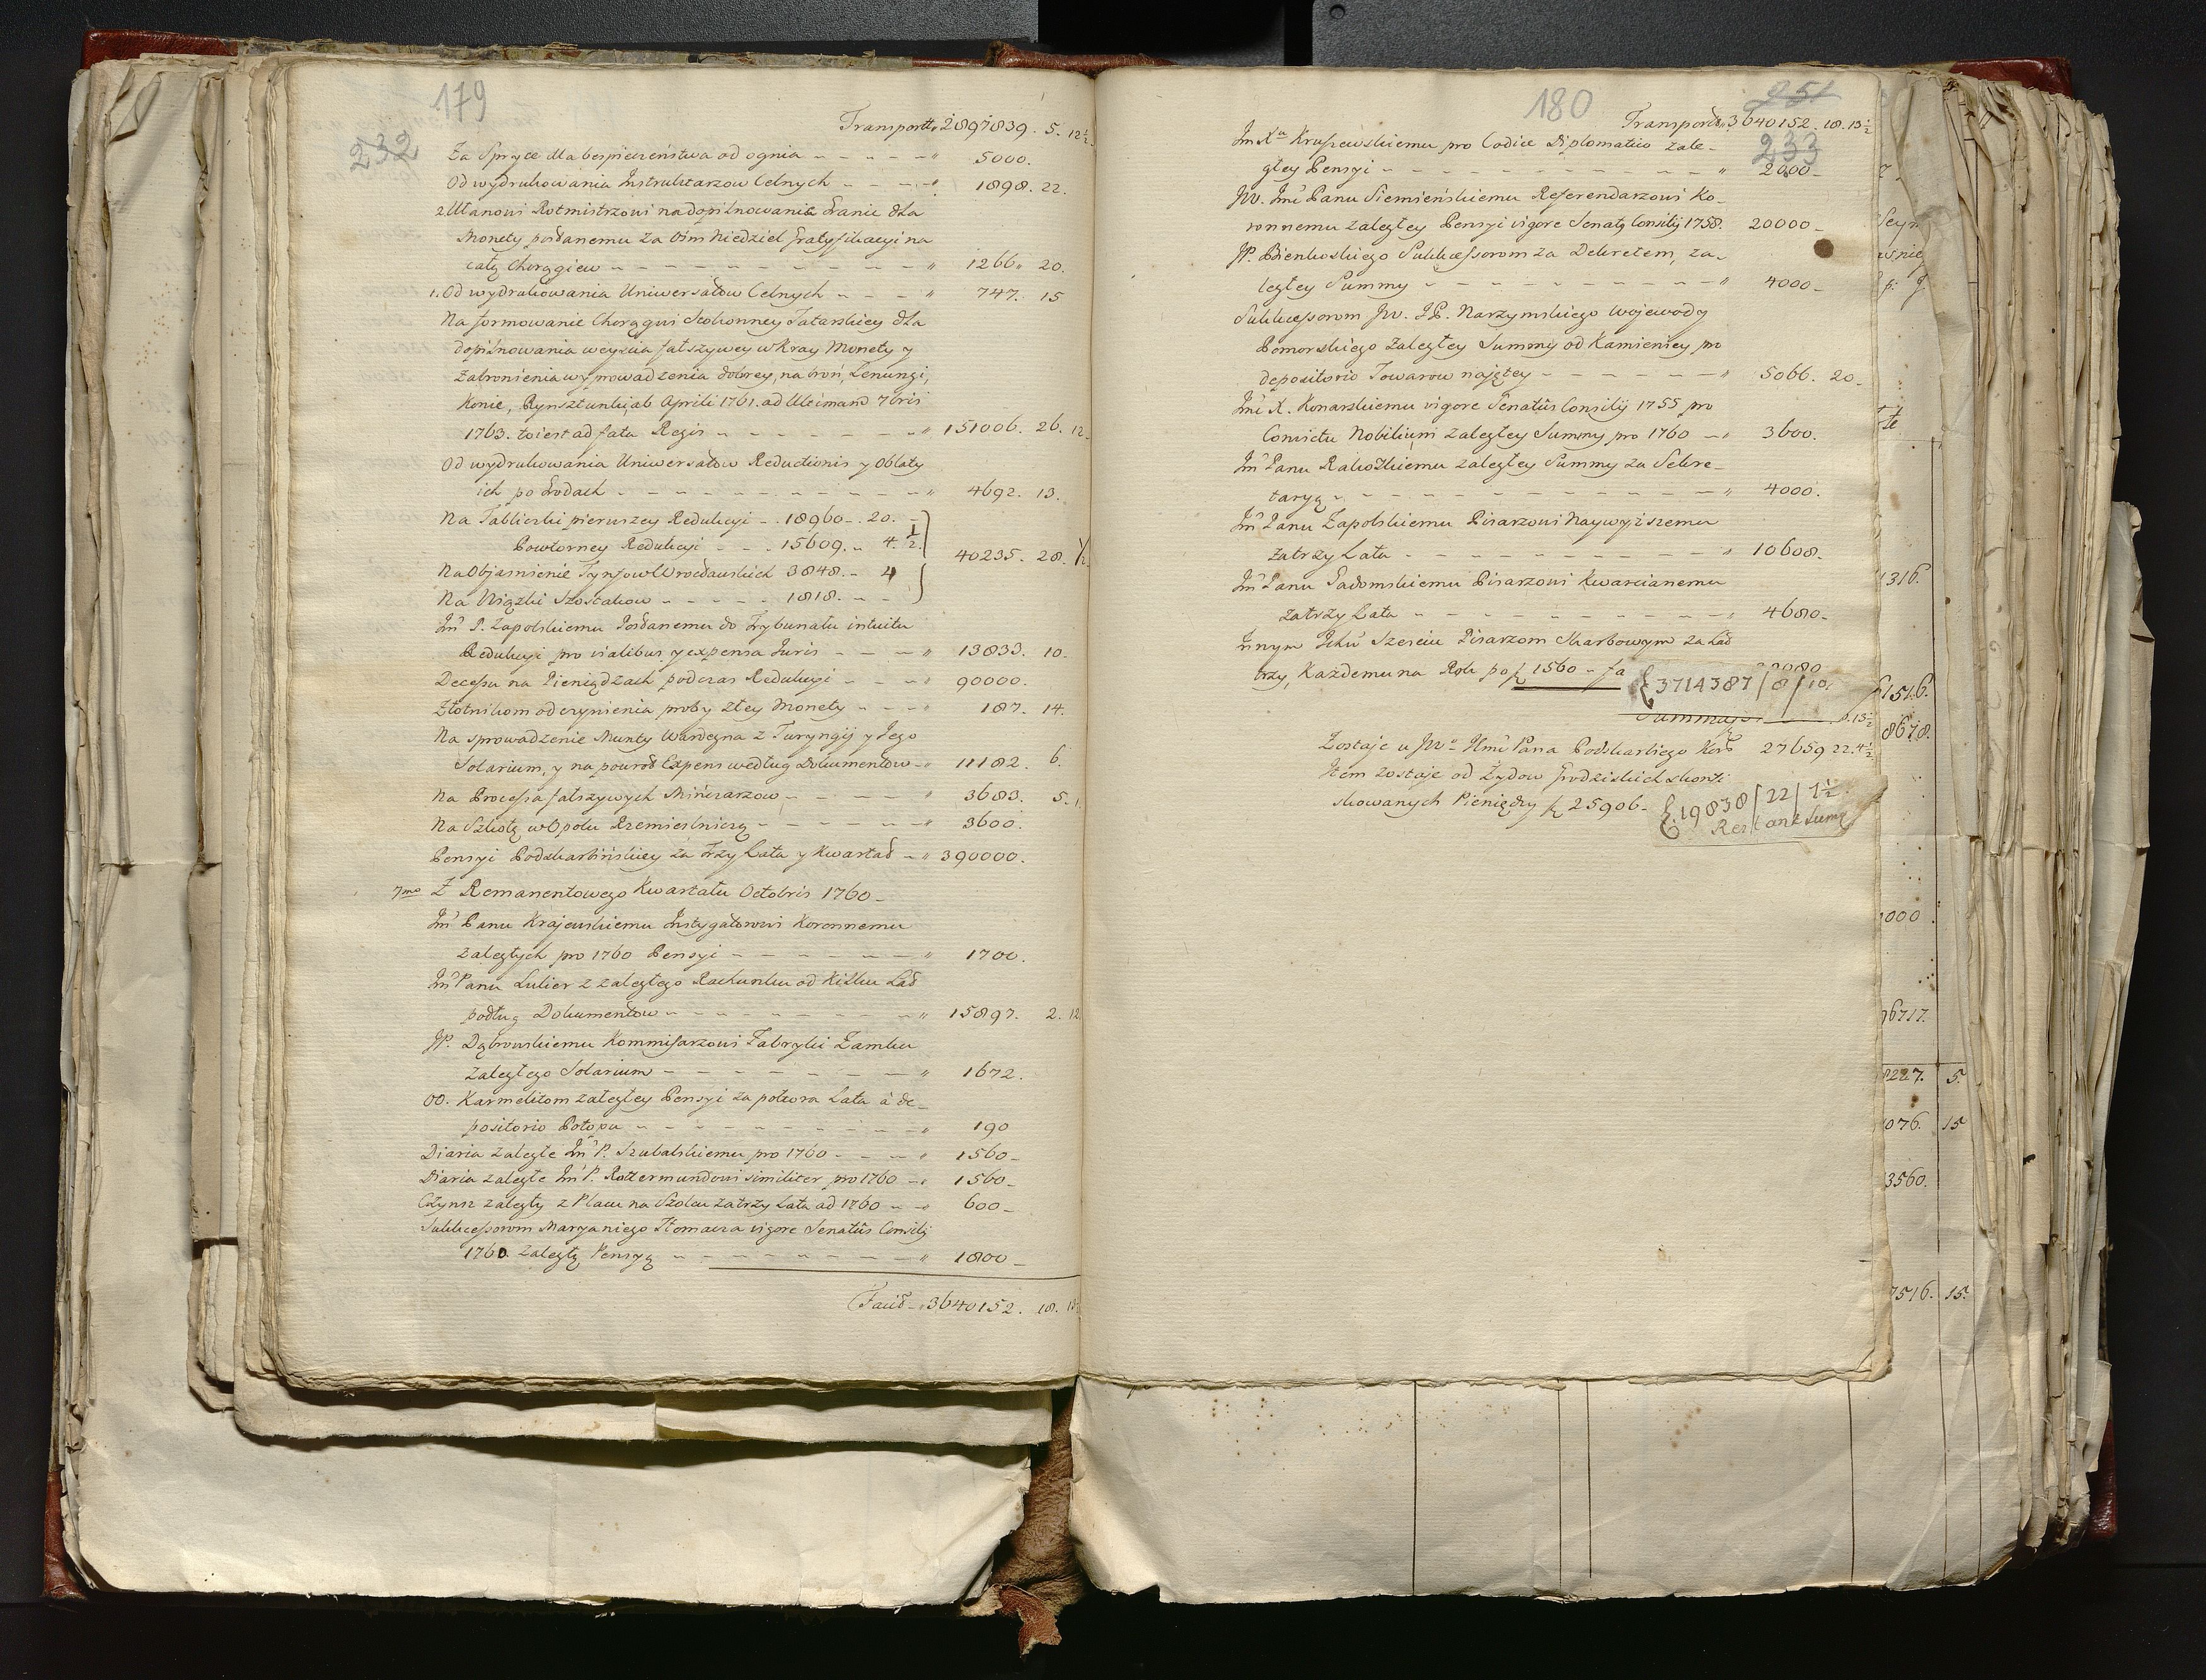 179
232
Transport " 2897839. 5. 12½.
Za Spryce dla bespieczeństwa od ognia " 5000.
Od wydrukowania Instruktarzow Celnych " 1898. 22.
Ułanowi Rotmistrzowi na dopilnowanie Granic dla
Monety posłanemu za Ośm Niedziel Gratyfikacyi na
całą Chorągiew " 1266. 20.
1. Od wydrukowania Uniwersałow Celnych " 747. 15
Na formowanie Chorągwi Tatarskiey dla
dopilnowania weyscia fałszywey w Kray Monety y
zabronienia wyprowadzenia dobrey, na broń, Lenungi,
Konie, Rynsztunki, ab Aprili 1761. ad Ultimam 7bris
1763. to iest ad fata Regis " 151006. 26. 12.
Od wydrukowania Uniwersałow Reductionis y Oblaty
ich po Grodach " 4692. 13.
Na Tabliczki pierwszey Redukcyi 18960. 20.
Powtorney Redukcyi 15609. 4. ½. 40235. 28. ½
Na Objasnienie Tynfow Wrocławskich 3848. 4
Na Wiązki Szostakow 1818.
Im̃ P. Zapolskiemu Posłanemu do Trybunału intuitu
Redukcyi pro vialibus y expensa Juris " 13833. 10.
Decessu na Pieniądzach podczas Redukcyi " 90000.
Złotnikom od czynienia proby złey Monety " 187. 14.
Na sprowadzenie Munty Wardeyna z Turyngij y Jego
Solarium, y na powrot Expens według Dokumentow " 11182. 6.
Na Processa fałszywych Mińcarzow " 3683. 5. 1.
Na Szkołę w Opolu Rzemieslniczą " 3600.
Pensyi Podskarbińskiey za Trzy Lata y Kwartał " 390000.
7mo Z Remanentowego Kwartału Octobris 1760
Im̃ Panu Krajewskiemu Instygatorowi Koronnemu
zaległych pro 1760 Pensyi " 1700.
Im̃ Panu Lulier z zaległego Rachunku od Kilku Lat
podług Dokumentow " 15897. 2. 12.
JP. Dąbrowskiemu Kommissarzowi Fabryki Zamku
zaległego Solarium " 1672.
OO. Karmelitom zaległey Pensyi za połtora Lata à de-
positorio Potopu " 190
Diaria zaległe Im̃ P. Szubalskiemu pro 1760 " 1560
Diaria zaległe Im̃ P. Rottermundowi similiter pro 1760 1560
Czynsz zaległy z Placu na Szolcu za trzy Lata ad 1760 600
Sukkcessorom Maryaniego Tłomacza vigore Senatûs Consilij
1760. zaległą Pensyą " 1800
Facit 3640152. 18. 13½
180
251
233
Transport " 3640152. 18. 13½
Im Xu Kruszewskiemu pro Codice Diplomatico zale-
głey Pensyi " 2000
JW. Im̃ Panu Siemieńskiemu Referendarzowi Ko-
ronnemu zaległey Pensyi vigore Senatq Consilij 1758. 20000
JP. Bienkoskiego Sukkcessorom za Dekretem, za-
ległey Summy " 4000
Sukkcessorom JW. JP. Narzymskiego Wojewody
Pomorskiego zaległey Summy od Kamienicy pro
depositorio Towarow najętey " 5066. 20
Im̃ X. Konarskiemu vigore Senatûs Consilij 1755 pro
Convictu Nobilium zaległey Summy pro 1760 " 3600.
Im̃ Panu Rakowskiemu zaległey Summy za Sekre-
taryą " 4000.
Im̃ Panu Zapolskiemu Pisarzowi Naywyższemu
za trzy Lata " 10608.
Im̃ Panu Gadomskiemu Pisarzowi Kwarcianemu
za trzy Lata " 4680.
Innym Ichm̃ Szesciu Pisarzom Skarbowym za Lat
trzy, Każdemu na Rok po f. 1560 fa 28080
f. 3714387 / 8 / 10.
Summa
Zostaje u JWo Im̃ Pana Podskarbiego Kor. 27659 22. 4½
Item zostaje od Żydow Grodziskich skonti-
skowanych Pieniędzy f. 25906
f. 19838 / 22 / 7½
Restant Summa
Seyn
1316.
1516.
8678.
000
96717.
8227. 5.
076. 15
3560.
7516. 15.